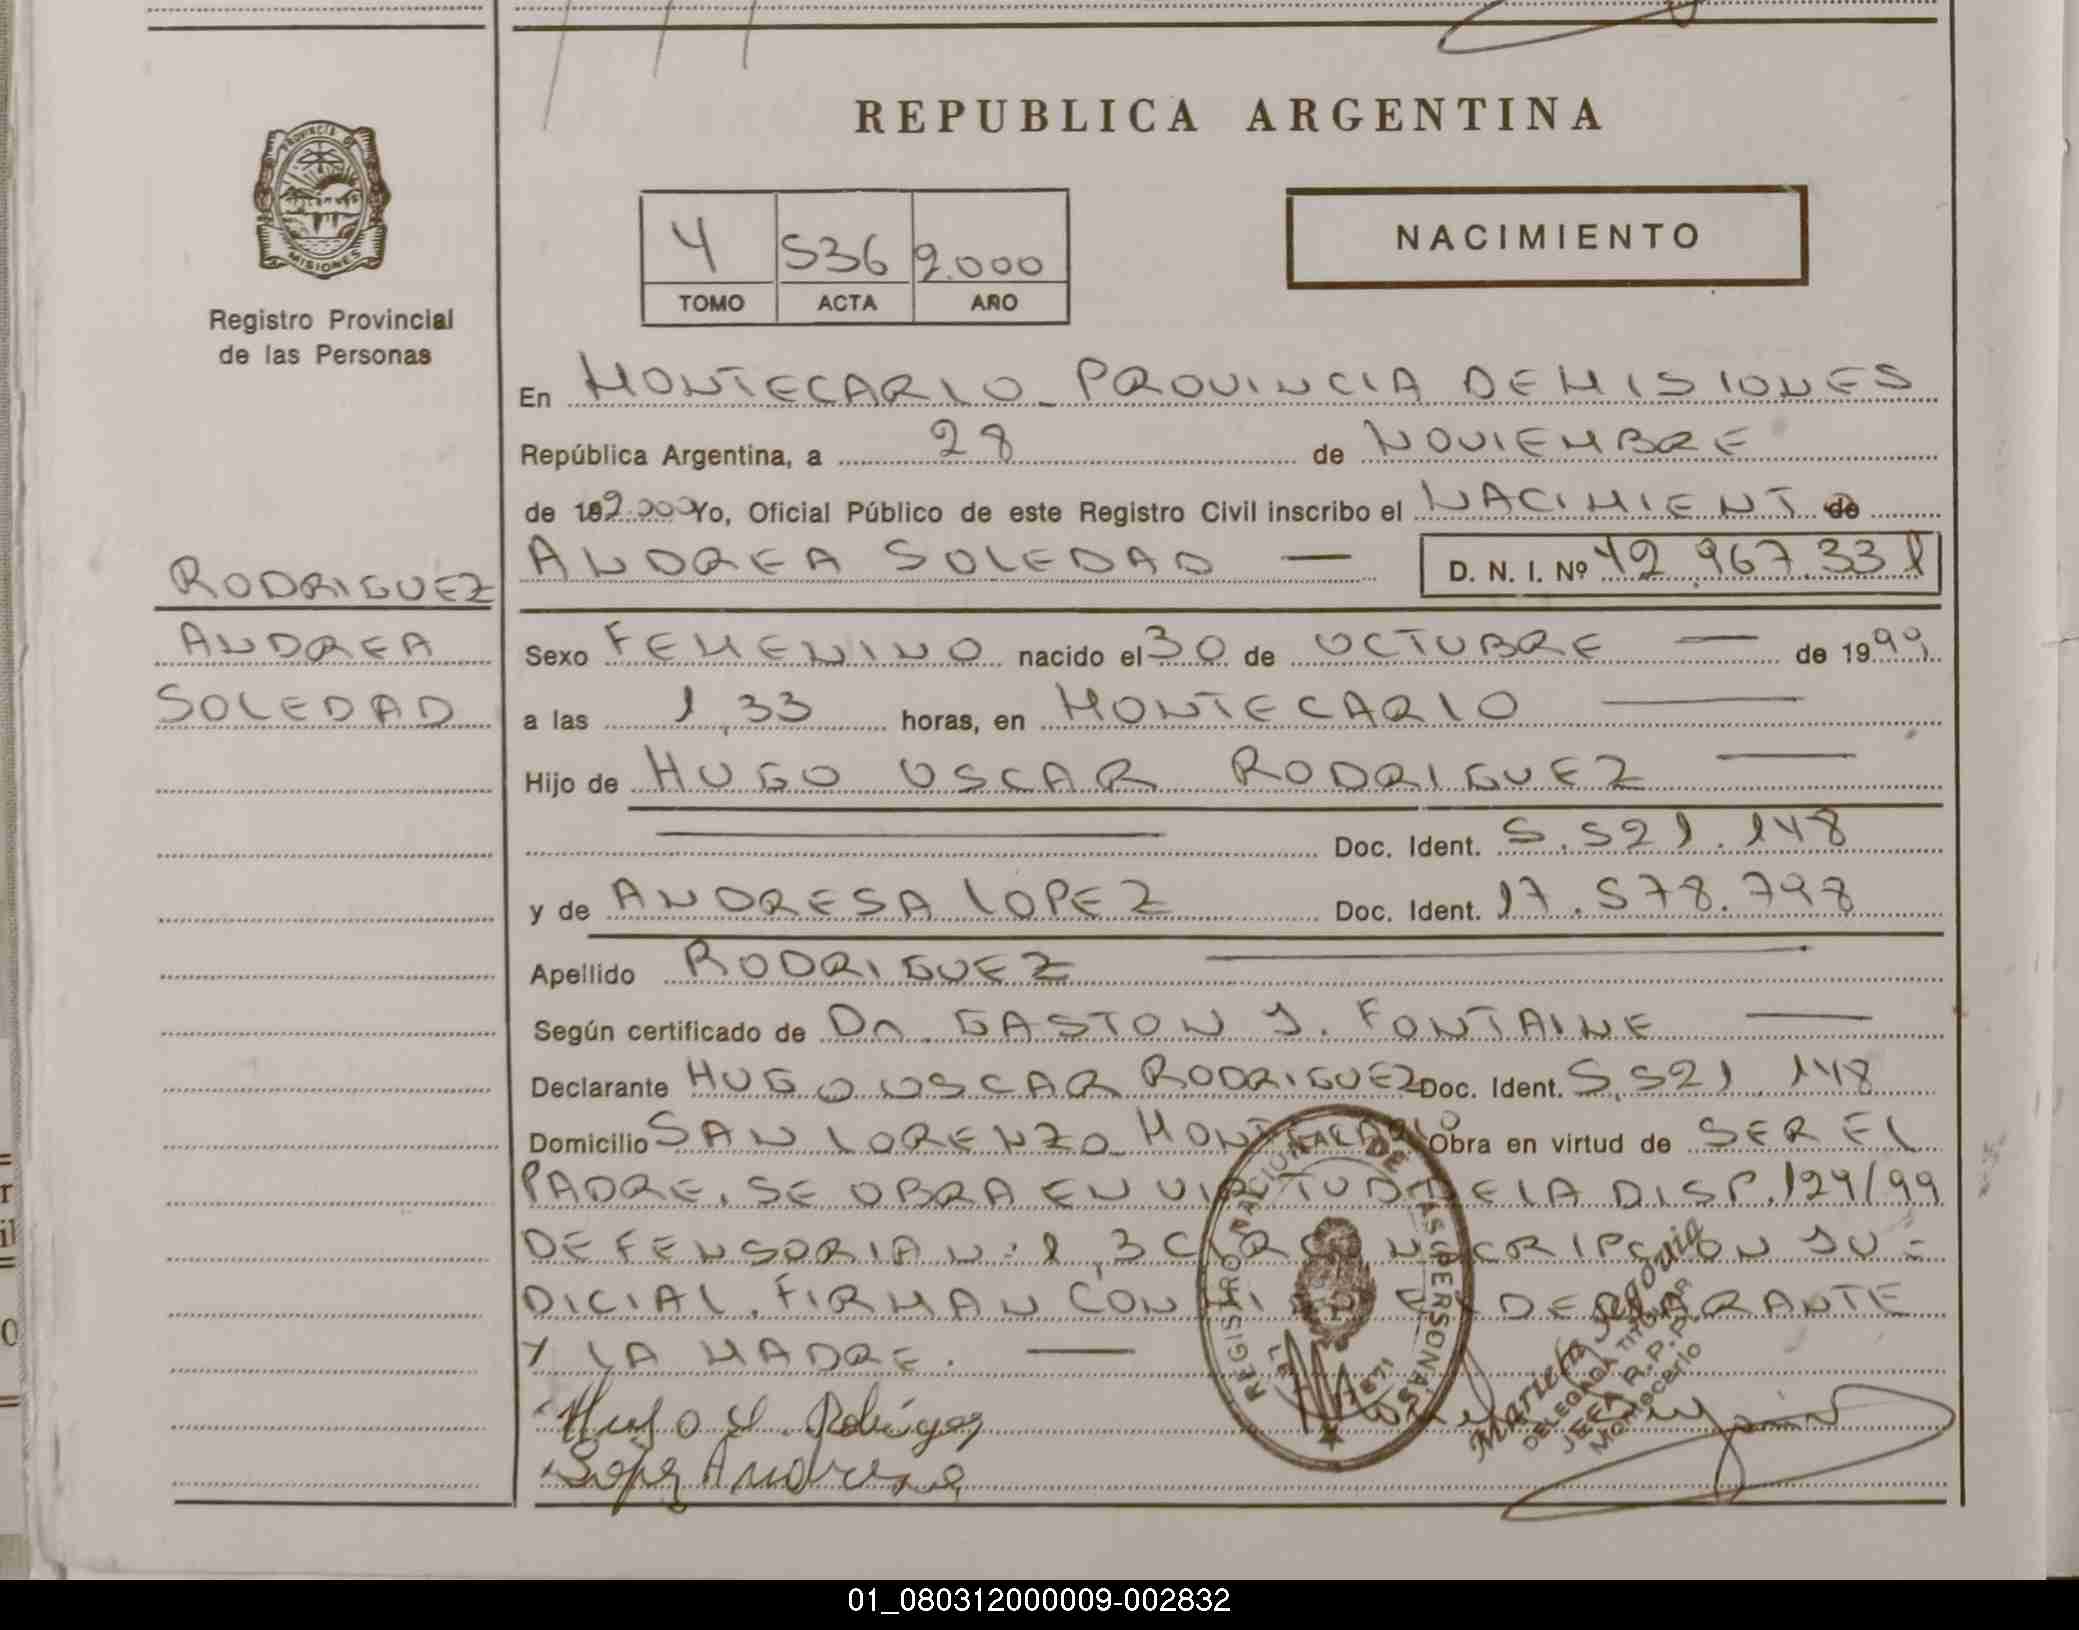 REPUBLICA ARGENTINA
PROVINCIA DE
MISIONES
Registro Provincial
de las Personas
4 536 2.000
TOMO ACTA AÑO
NACIMIENTO
En MONTECARLO - PROVINCIA DE MISIONES
República Argentina, a 28 de NOVIEMBRE
de 192.000 Yo, Oficial Público de este Registro Civil inscribo el NACIMIENT de
RODRIGUEZ
ANDREA
SOLEDAD
ANDREA SOLEDAD — D. N. I. Nº 42.967.331
Sexo FEMENINO nacido el 30 de OCTUBRE — de 1999
a las 1,33 horas, en MONTECARLO —
Hijo de HUGO OSCAR RODRIGUEZ —
— Doc. Ident. 5.521.148
y de ANDRESA LOPEZ Doc. Ident. 17.578.798
Apellido RODRIGUEZ —
Según certificado de Dr. GASTON J. FONTAINE —
Declarante HUGO OSCAR RODRIGUEZ Doc. Ident. 5.521.148
Domicilio SAN LORENZO MONTECARLO Obra en virtud de SER EL
PADRE. SE OBRA EN VIRTUD DE LA DISP. 124/99
DEFENSORIA N: 1, 3 CIRCUNSCRIPCION JU=
DICIAL. FIRMAN CONMIGO EL DECLARANTE
Y LA MADRE. —
Hugo O. Rodríguez
Lopez Andresa
REGISTRO NACIONAL DE LAS PERSONAS
DELEGADA TITULAR
JEFA R.P.P.
Montecarlo
01_080312000009-002832